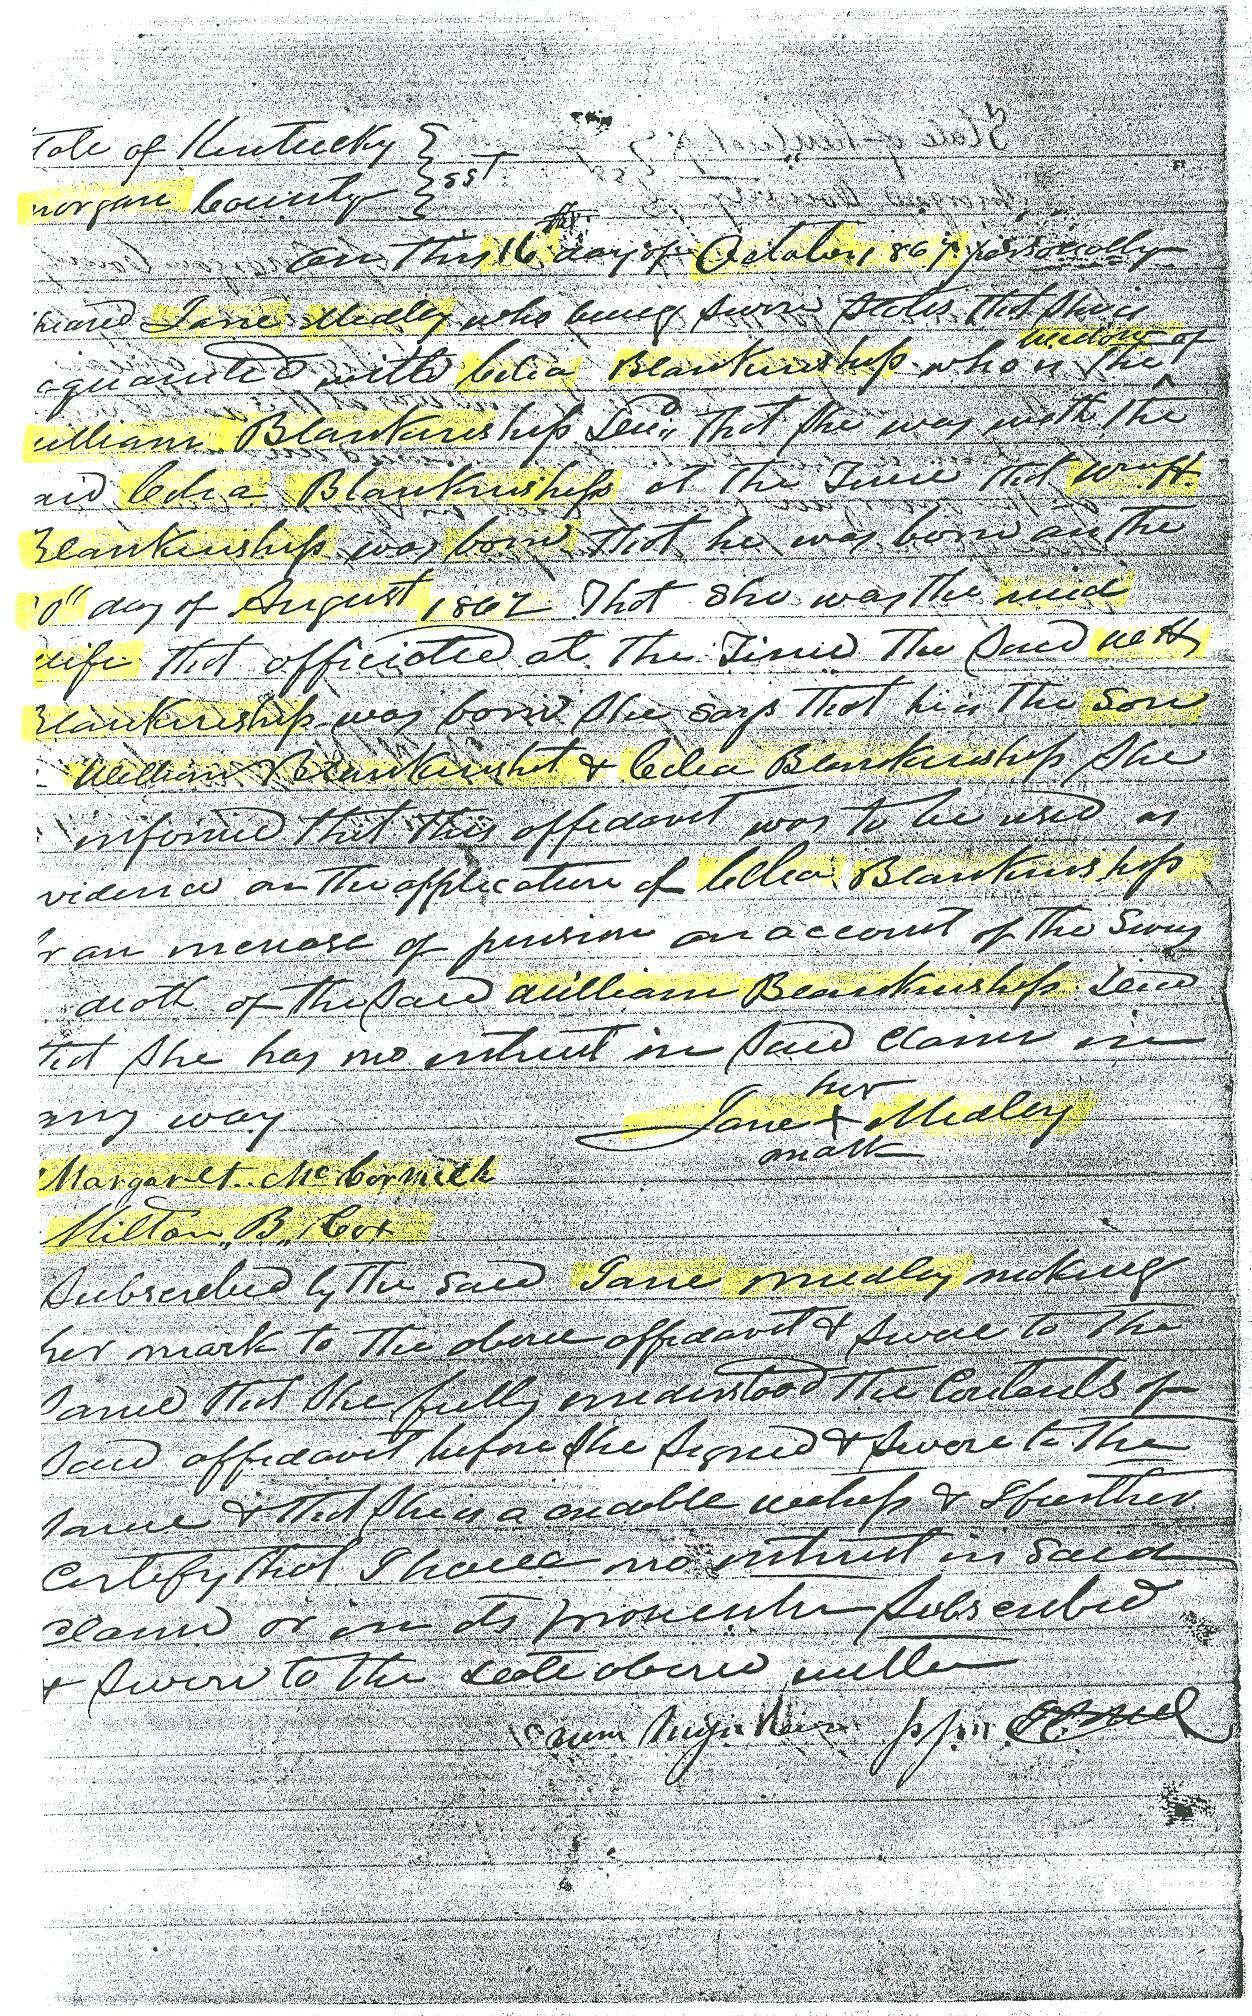 tate of Kentucky }
morgan County } SST
on this 16th day of October 1867 personally
peared Jane Medley who being sworn states that she is
aquanted with Celia Blankinship who is the widow of
illiam Blankinship Decd that she was with the
aid Celia Blankinship at the Time that W. H.
Blankinship was born that he was born on the
0" day of August 1862 That She was the mid
wife that officiated at the Time the said W H
Blankinship was born She says that he is the Son
William Blankinship & Celia Blankinship She
informed that this affedavit was to be used as
vidence on the application of Celia Blankinship
r an increase of pension on account of the
death of the said William Blankinship Decd
that she has no intrest in said claim in
any way
Jane her + mark Medley
Margaret McCormick
Milton, B, Cox
Subscribed by the said Jane Medley making
her mark to the above affidavit & swore to the
same that she fully understood the Contents of
said affidavit before she signed & swore to the
same & that she is a credible witness & I further
certify that I have no intrest in said
claim or in its prosecution Subscribed
& sworn to the date above written